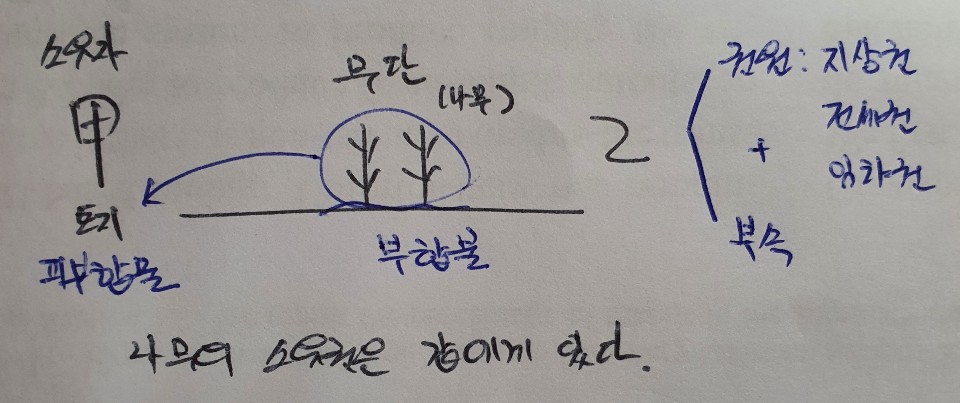 소유자
甲
토지
피부합물
무단
(나무)
부합물
乙
권원: 지상권
전세권
+
임차권
부속
나무의 소유권은 갑에게 있다.